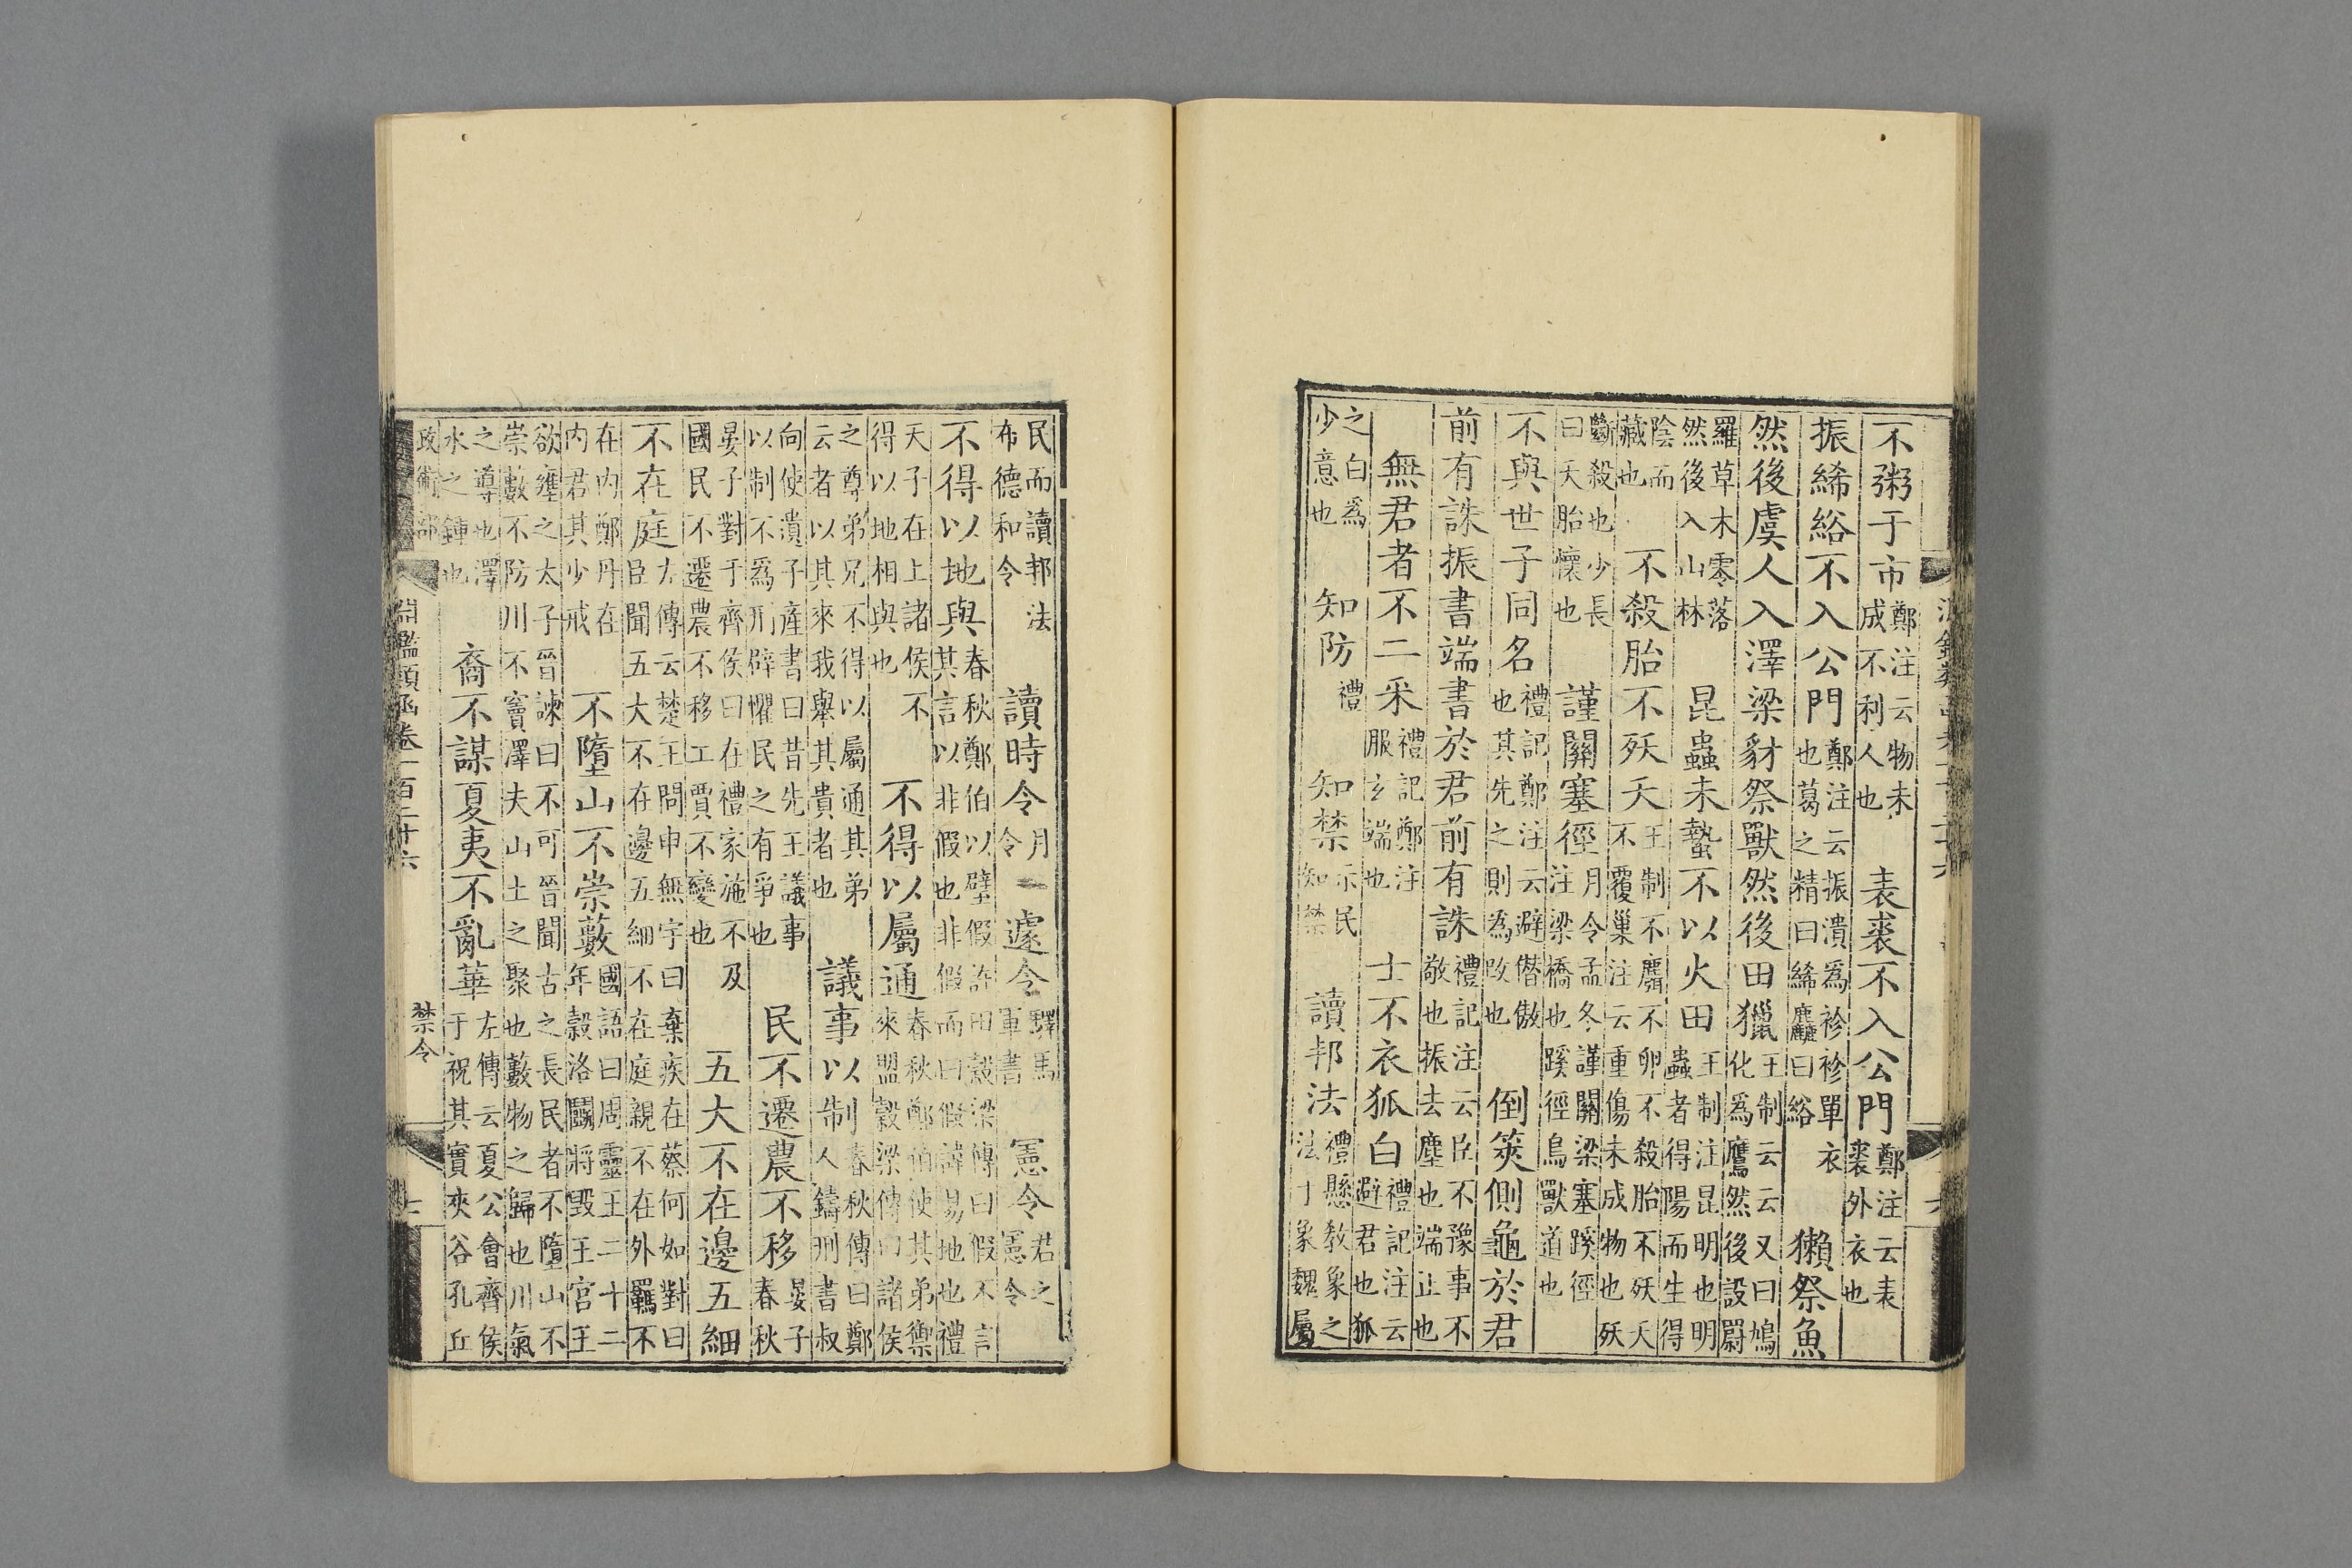 不粥于市鄭注云物未成不利人也 表裘不入公門鄭注云表裘外衣也
振絺綌不入公門鄭注云振潰爲袗袗單衣也葛之精曰絺麤曰綌 獺祭魚
然後虞人入澤梁豺祭獸然後田獵王制云云又曰鳩化爲鷹然後設罻
羅草木零落然後入山林 昆蟲未蟄不以火田王制注昆明也明蟲者得陽而生得
陰而藏也 不殺胎不殀夭王制不麛不卵不殺胎不殀夭不覆巢注云重傷未成物也殀
斷殺也少長曰夭胎懷也 謹關塞徑月令孟冬謹關梁塞蹊徑注梁橋也蹊徑鳥獸道也
不與世子同名禮記鄭注云避僣傲也其先之則為改也 倒筴側龜於君
前有誅振書端書於君前有誅禮記注云臣不豫事不敬也振去塵也端正也
無君者不二采禮記鄭注服玄端也 士不衣狐白禮記注云避君也狐
之白爲少意也 知防禮 知禁示民知禁 讀邦法禮懸教象之法于象魏屬
六
民而讀邦法布德和令 讀時令月令 遽令驛馬軍書 憲令君之憲令
不得以地與春秋鄭伯以璧假許田穀梁傳曰假不言其言以非假也非假而曰假諱易地也禮
天子在上諸侯不得以地相與也 不得以屬通春秋鄭伯使其弟禦來盟穀梁傳曰諸侯
之尊弟兄不得以屬通其弟云者以其來我舉其貴者也 議事以制春秋傳曰鄭人鑄刑書叔
向使潰子產書曰昔先王議事以制不爲刑辟懼民之有爭也 民不遷農不移晏子春秋
晏子對于齊侯曰在禮家施不及國民不遷農不移工賈不變也 五大不在邊五細
不在庭左傳云楚王問申無宇曰棄疾在蔡何如對曰臣聞五大不在邊五細不在庭親不在外羈不
在内鄭丹在内君其少戒 不墮山不崇藪國語曰周靈王二十二年穀洛鬭將毀王宫王
欲壅之太子晉諫曰不可晉聞古之長民者不墮山不崇藪不防川不竇澤夫山土之聚也藪物之歸也川氣
之導也澤水之鍾也 裔不謀夏夷不亂華左傳云夏公會齊侯于祝其實夾谷孔丘
政術部 淵鑑類函卷一百二十六 禁令 七